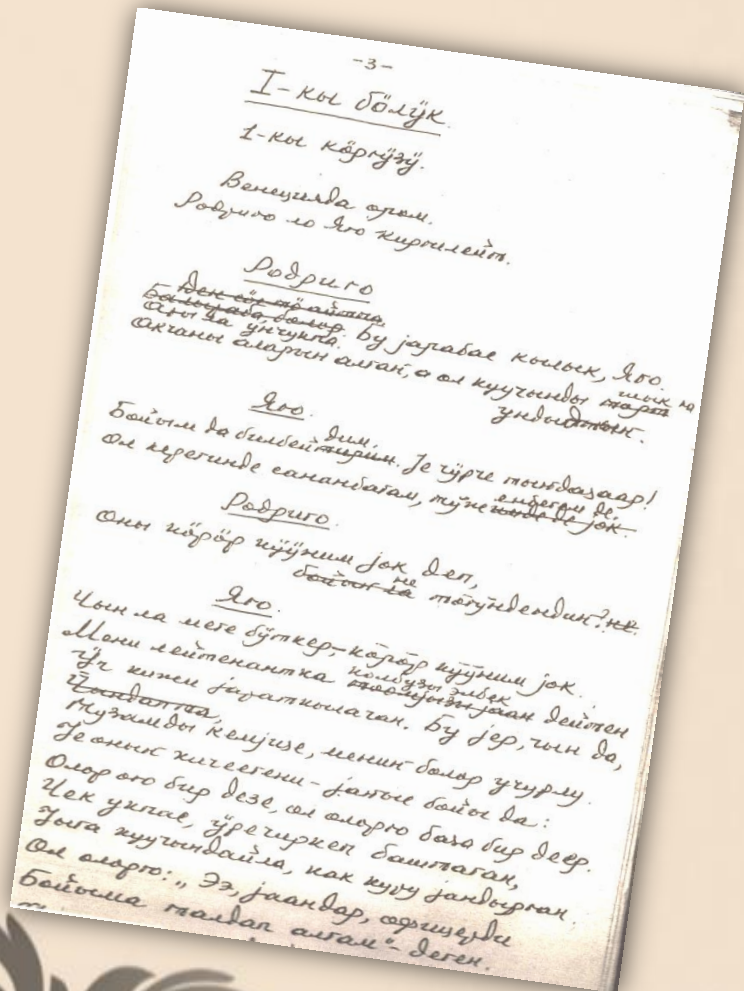 -3-
I-кы бӧлӱк.
1-кы кӧргӱзӱ.
Венецияда ором.
Родриго ло Яго киргилейт.
Родриго
Бу јарабас кылык, Яго.
Акчаны аларын алган, а ол куучынды
Яго.
Бойым да билбей дим. Је ӱрче тыҥдазаар!
Ол керегинде сананбагам,
Родриго.
Оны кӧрӧр кӱӱним јок деп,
не тӧгӱндендиҥ?
Яго.
Чын ла меге бӱткер,- кӧрӧр кӱӱним јок.
Мени лейтенантка дейтен
Ӱч кижи јараткылаган. Бу јер, чын да,
Чындаптаа,
Музамды кемјизе, мениҥ болор учурлу.
Је оныҥ кичеегени - јаҥыс бойы да:
Олор ого бир дезе, ол олорго база бир деер.
Чек укпас, ӱречиркеп баштаган,
куучындайла, как куру јандырган.
Ол олорго: „Ээ, јаандар, офицерди
Бойыма талдап алгам"- деген.